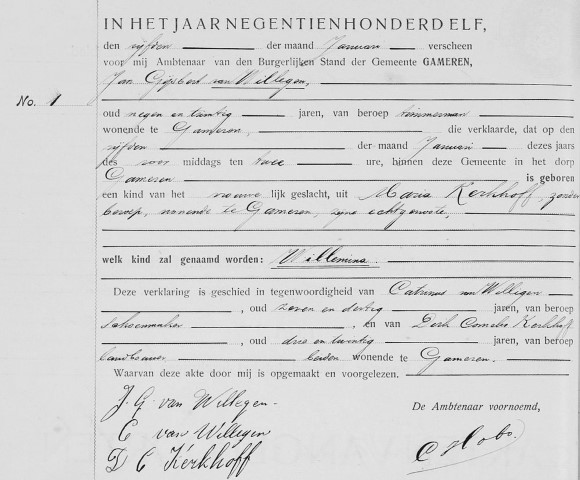 IN HET JAAR NEGENTIENHONDERD ELF,
den vijfden der maand Januari verscheen
voor mij Ambtenaar van den Burgerlijken Stand der Gemeente GAMEREN,
Jan Gijsbert van Willegen,
No. 1
oud negen en twintig jaren, van beroep timmerman
wonende te Gameren, die verklaarde, dat op den
vijfden der maand Januari dezes jaars
des voor middags ten twee ure, binnen deze Gemeente in het dorp
Gameren is geboren
een kind van het vrouwe lijk geslacht, uit Maria Kerkhoff, zonder
beroep, wonende te Gameren, zijne echtgenoote,
welk kind zal genaamd worden: Willemina.
Deze verklaring is geschied in tegenwoordigheid van Catrinus van Willegen
, oud zeven en dertig jaren, van beroep
schoenmaker , en van Dirk Cornelis Kerkhoff
, oud drie en twintig jaren, van beroep
landbouwer beiden wonende te Gameren.
Waarvan deze akte door mij is opgemaakt en voorgelezen.
J. G. van Willegen
De Ambtenaar voornoemd,
C van Willegen
D C Kerkhoff